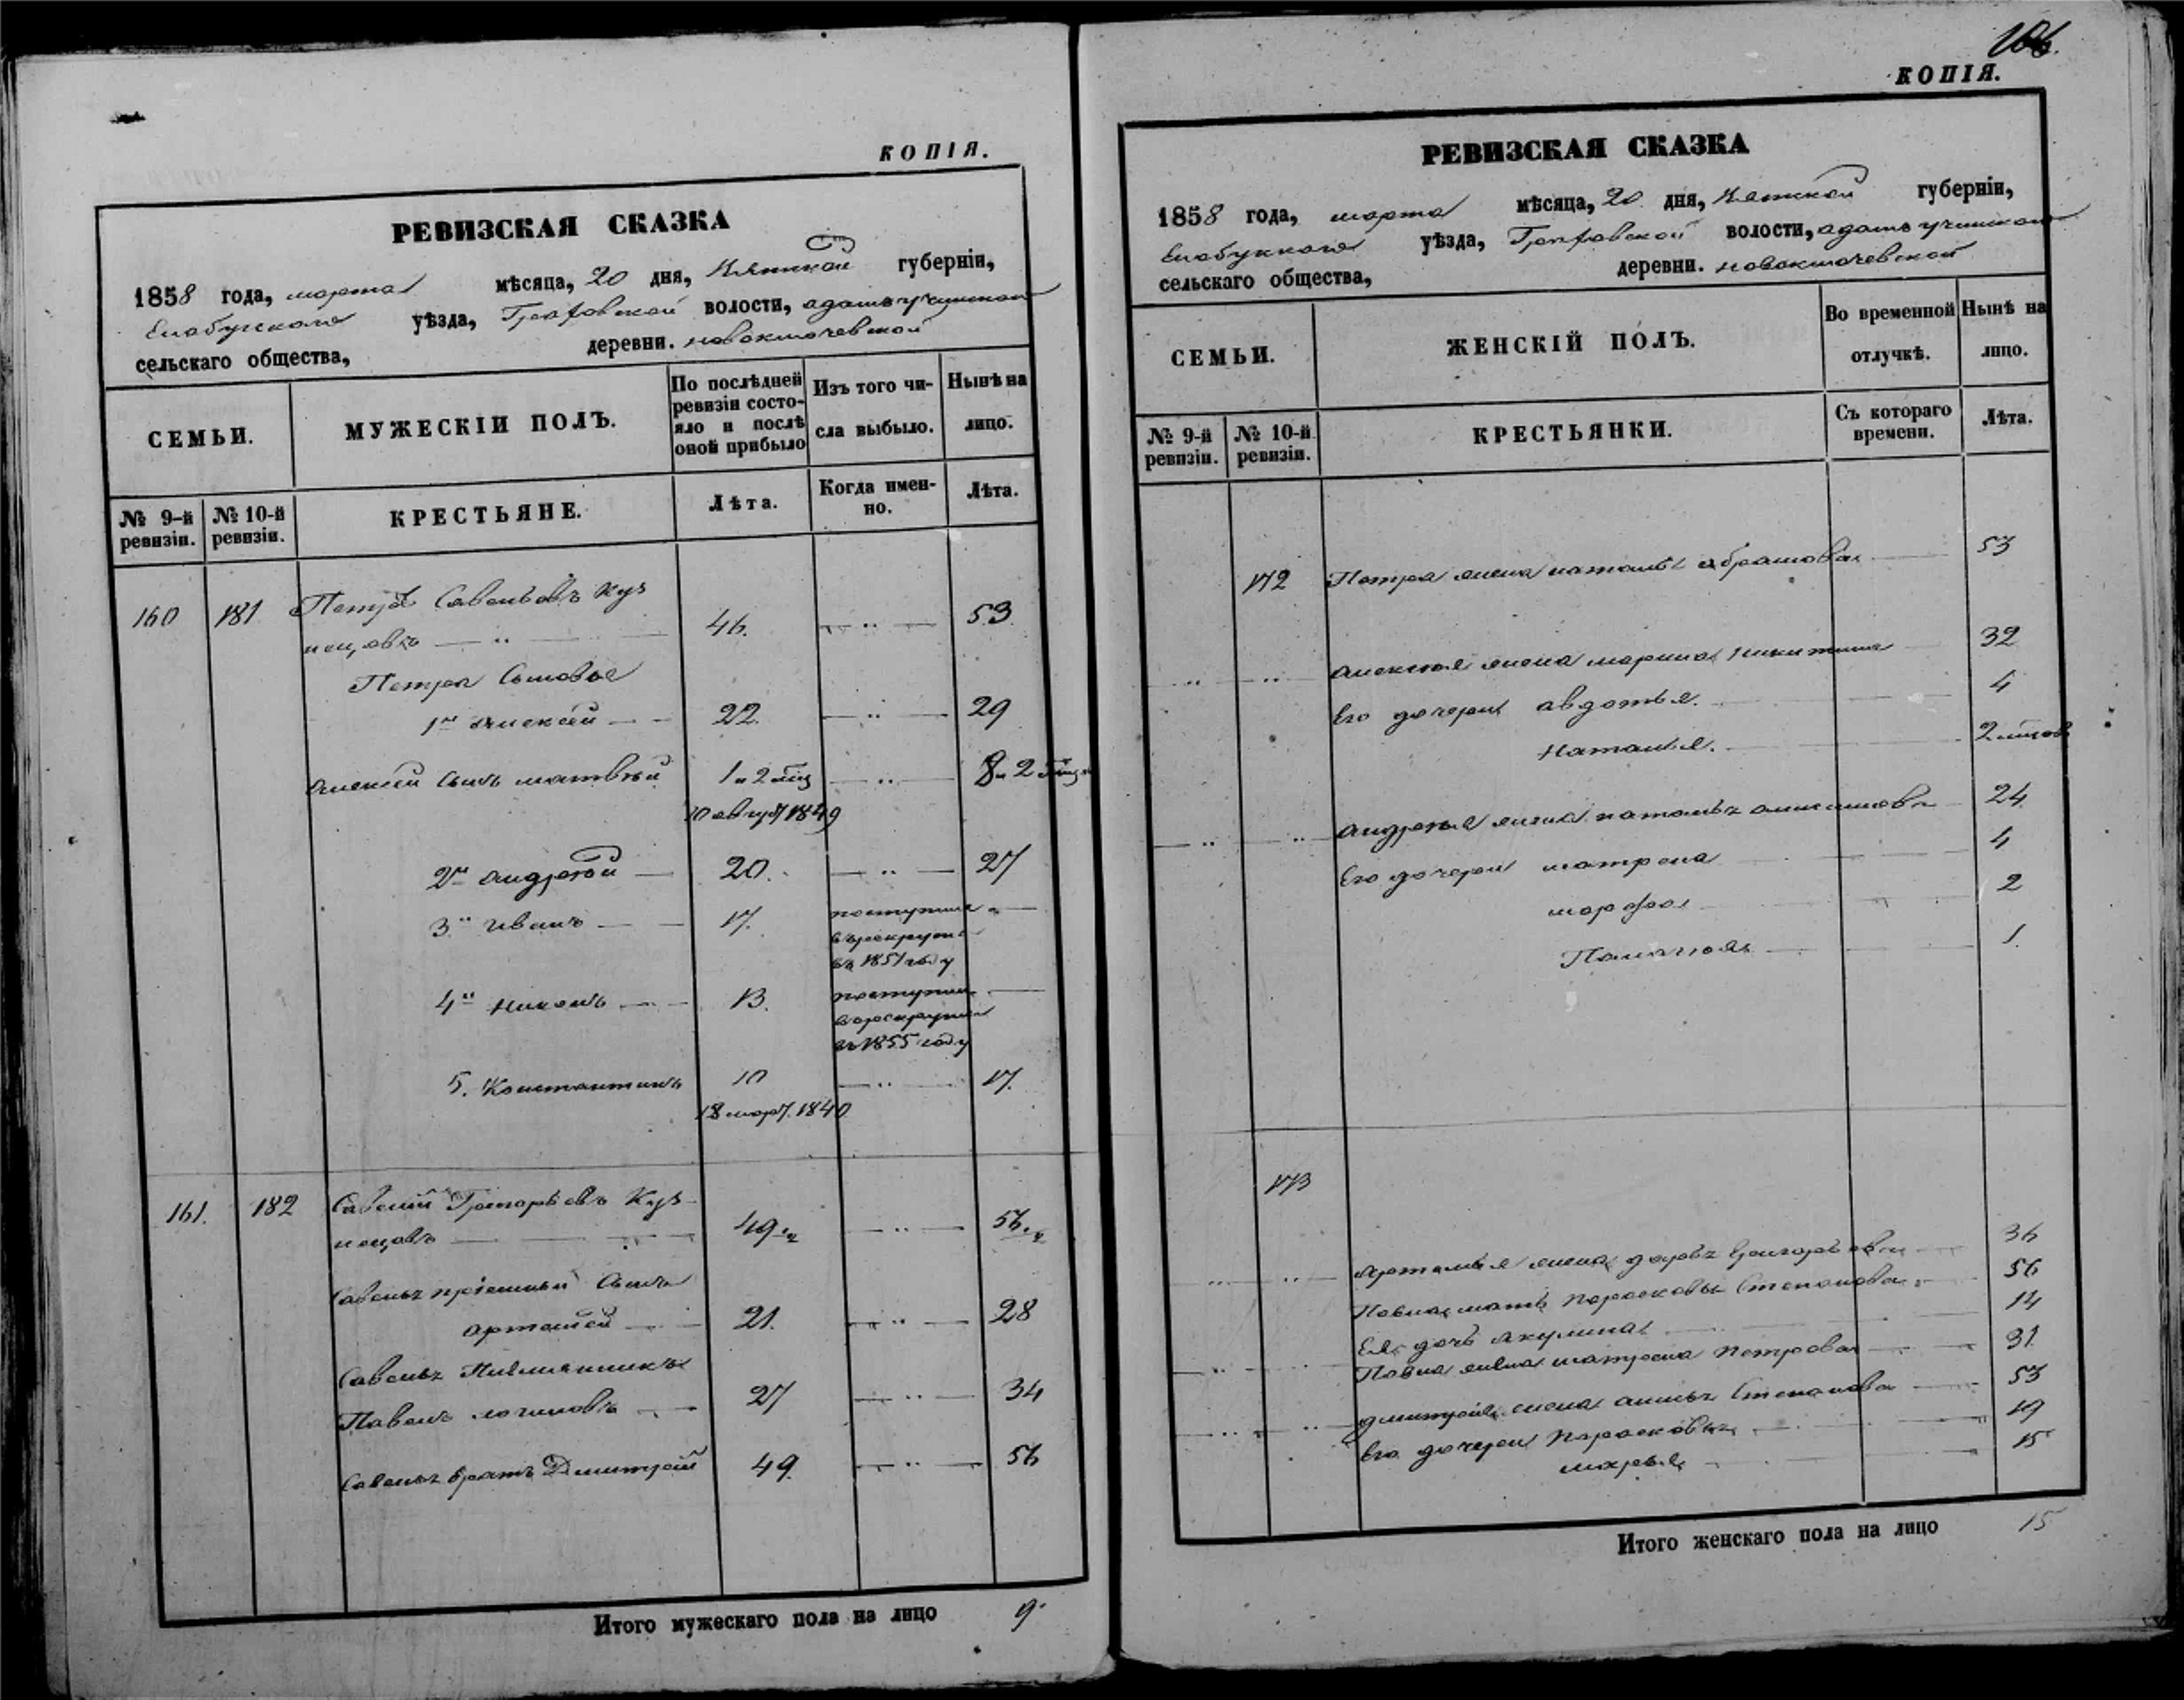 КОПІЯ.
РЕВИЗСКАЯ СКАЗКА
1858 года, марта мѣсяца, 20 дня, Вятской губерніи,
Елабужскаго уѣзда, Граховской волости,
сельскаго общества, деревни.
СЕМЬИ.
МУЖЕСКІЙ ПОЛЪ.
По послѣдней ревизіи состояло и послѣ оной прибыло
Изъ того числа выбыло.
Нынѣ на лицо.
№ 9-й ревизіи.
№ 10-й ревизіи.
КРЕСТЬЯНЕ.
Лѣта.
Когда именно.
Лѣта.
160 181 Петръ Савельевъ Куз
нецовъ — „ — 46. — „ — 53.
Петра Сыновья
1й Алексѣй 22. — „ — 29
Алексѣя сынъ Матвѣй 1 и 2 мѣс — „ — 8 и 2 мѣс
10 август 1849
2й Андрей 20. — „ — 27
3й Иванъ 17. поступилъ
въ рекруты
въ 1851 году
4й 13. поступилъ
въ рекруты
въ 1855 году
5. Константинъ 10 — „ — 17.
18 март. 1840
161. 182 Савелій Григорьевъ Куз-
нецовъ 49 — „ — 56
Савелья пріемный Сынъ
Артемій 21. — „ — 28
Савелья Племянникъ
Павелъ Логиновъ 27 — „ — 34
Савелья братъ Дмитрій 49. — „ — 56
Итого мужескаго пола на лицо 9.
КОПІЯ.
РЕВИЗСКАЯ СКАЗКА
1858 года, марта мѣсяца, 20 дня, Вятской губерніи,
уѣзда, Граховской волости,
сельскаго общества, деревни.
СЕМЬИ.
ЖЕНСКІЙ ПОЛЪ.
Во временной отлучкѣ.
Нынѣ на лицо.
№ 9-й ревизіи.
№ 10-й ревизіи.
КРЕСТЬЯНКИ.
Съ котораго времени.
Лѣта.
172 Петра жена Наталья Абрамова 53
Алексѣя жена Марина Никитина 32
Его дочери Авдотья. 4
Наталья. 2 мѣсяц
Андрея жена Наталья 24
Его дочери Матрена 4
Марфа 2
Палагѣя 1.
173
Артемья жена Дарья Григорьева 36
Павла мать Парасковья Степанова 56
Ея дочь Акулина 14
Павла жена Матрена Петрова 31
Дмитрія жена Анна Степанова 53
Его дочери Парасковья 19
Марья 15
Итого женскаго пола на лицо 15